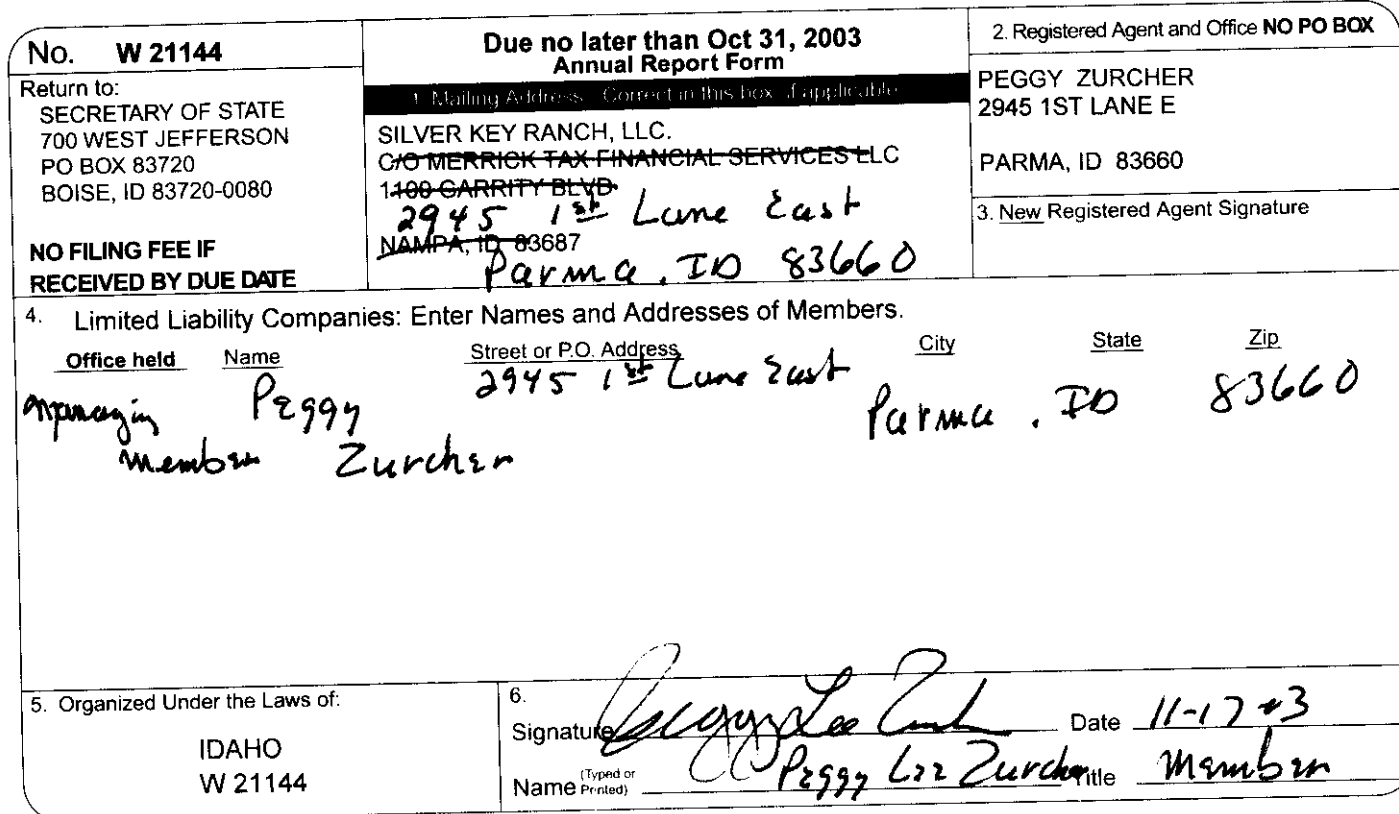 No. W 21144
Return to:
SECRETARY OF STATE
700 WEST JEFFERSON
PO BOX 83720
BOISE, ID 83720-0080
NO FILING FEE IF
RECEIVED BY DUE DATE
Due no later than Oct 31, 2003
Annual Report Form
1. Mailing Address: Correct in this box, if applicable
SILVER KEY RANCH, LLC.
C/O MERRICK TAX FINANCIAL SERVICES LLC
1100 GARRITY BLVD
2945 1st Lane East
NAMPA, ID 83687
Parma, ID 83660
2. Registered Agent and Office NO PO BOX
PEGGY ZURCHER
2945 1ST LANE E
PARMA, ID 83660
3. New Registered Agent Signature
4. Limited Liability Companies: Enter Names and Addresses of Members.
Office held Name Street or P.O. Address City State Zip
Managin Peggy 2945 1st Lane East Parma, ID 83660
Member Zurcher
5. Organized Under the Laws of:
IDAHO
W 21144
6.
Signature Peggy Lee Date 11-17-03
Name (Typed or Printed) Peggy Lee Zurcher Title Member